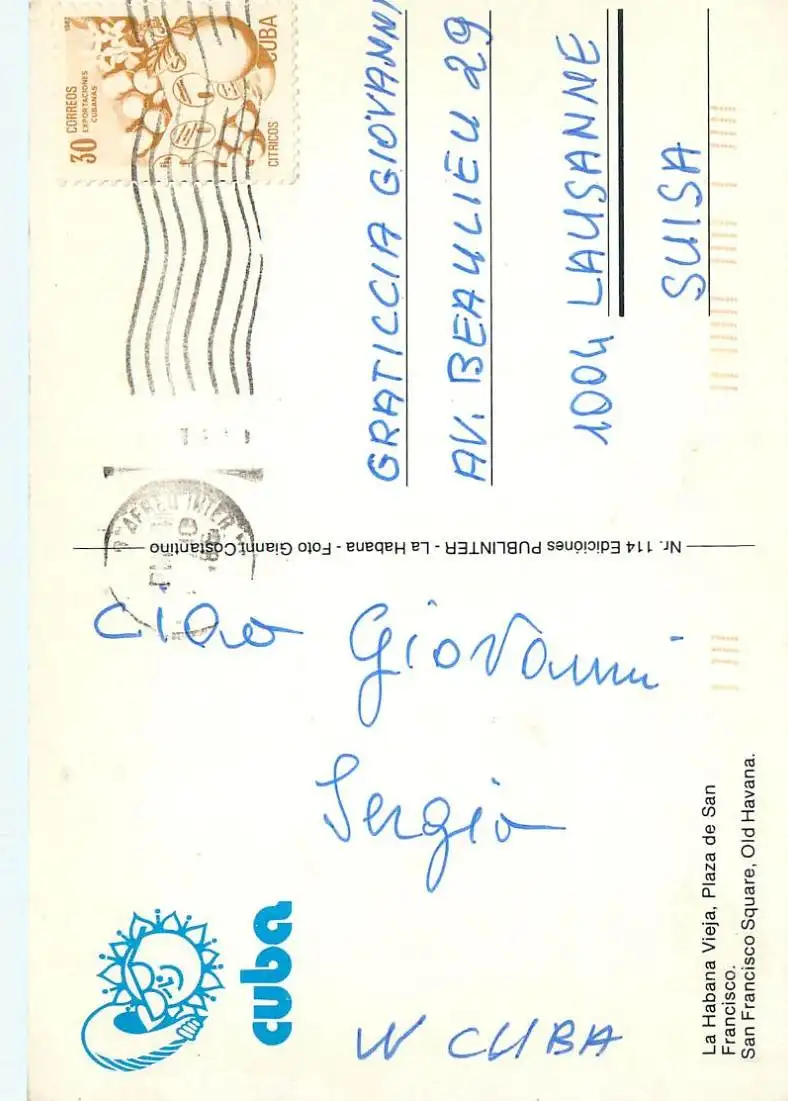 ciao Giovanni
Sergio
W CUBA
cuba
La Habana Vieja, Plaza de San
Francisco.
San Francisco Square, Old Havana.
Nr. 114 Ediciónes PUBLINTER - La Habana - Foto Gianni Costantino
30 CORREOS
EXPORTACIONES
CUBANAS
CUBA
CITRICOS
AEREO INTER
GRATICCIA GIOVANNI
AV. BEAULIEU 29
1004 LAUSANNE
SUISA